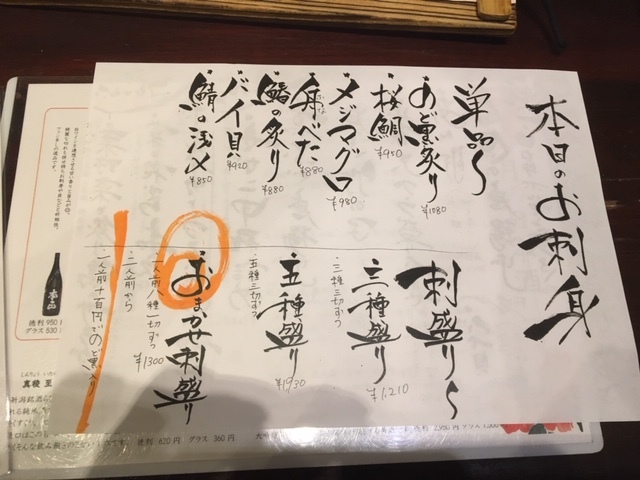 本日のお刺身
単品〜
のど黒炙り ¥1080
桜鯛 ¥950
メジマグロ ¥980
舟べた ¥880
鰆の炙り ¥880
バイ貝 ¥920
鯖の浅〆 ¥850
刺盛り〜
三種盛り ¥1,210
三種三切ずつ
五種盛り ¥1930
五種三切ずつ
おまかせ刺盛り
一人前/種一切ずつ ¥1300
二人前から
一人前+百円でのど黒入り
10
徳利 950
グラス 530
真稜 至
徳利 620円 グラス 360円